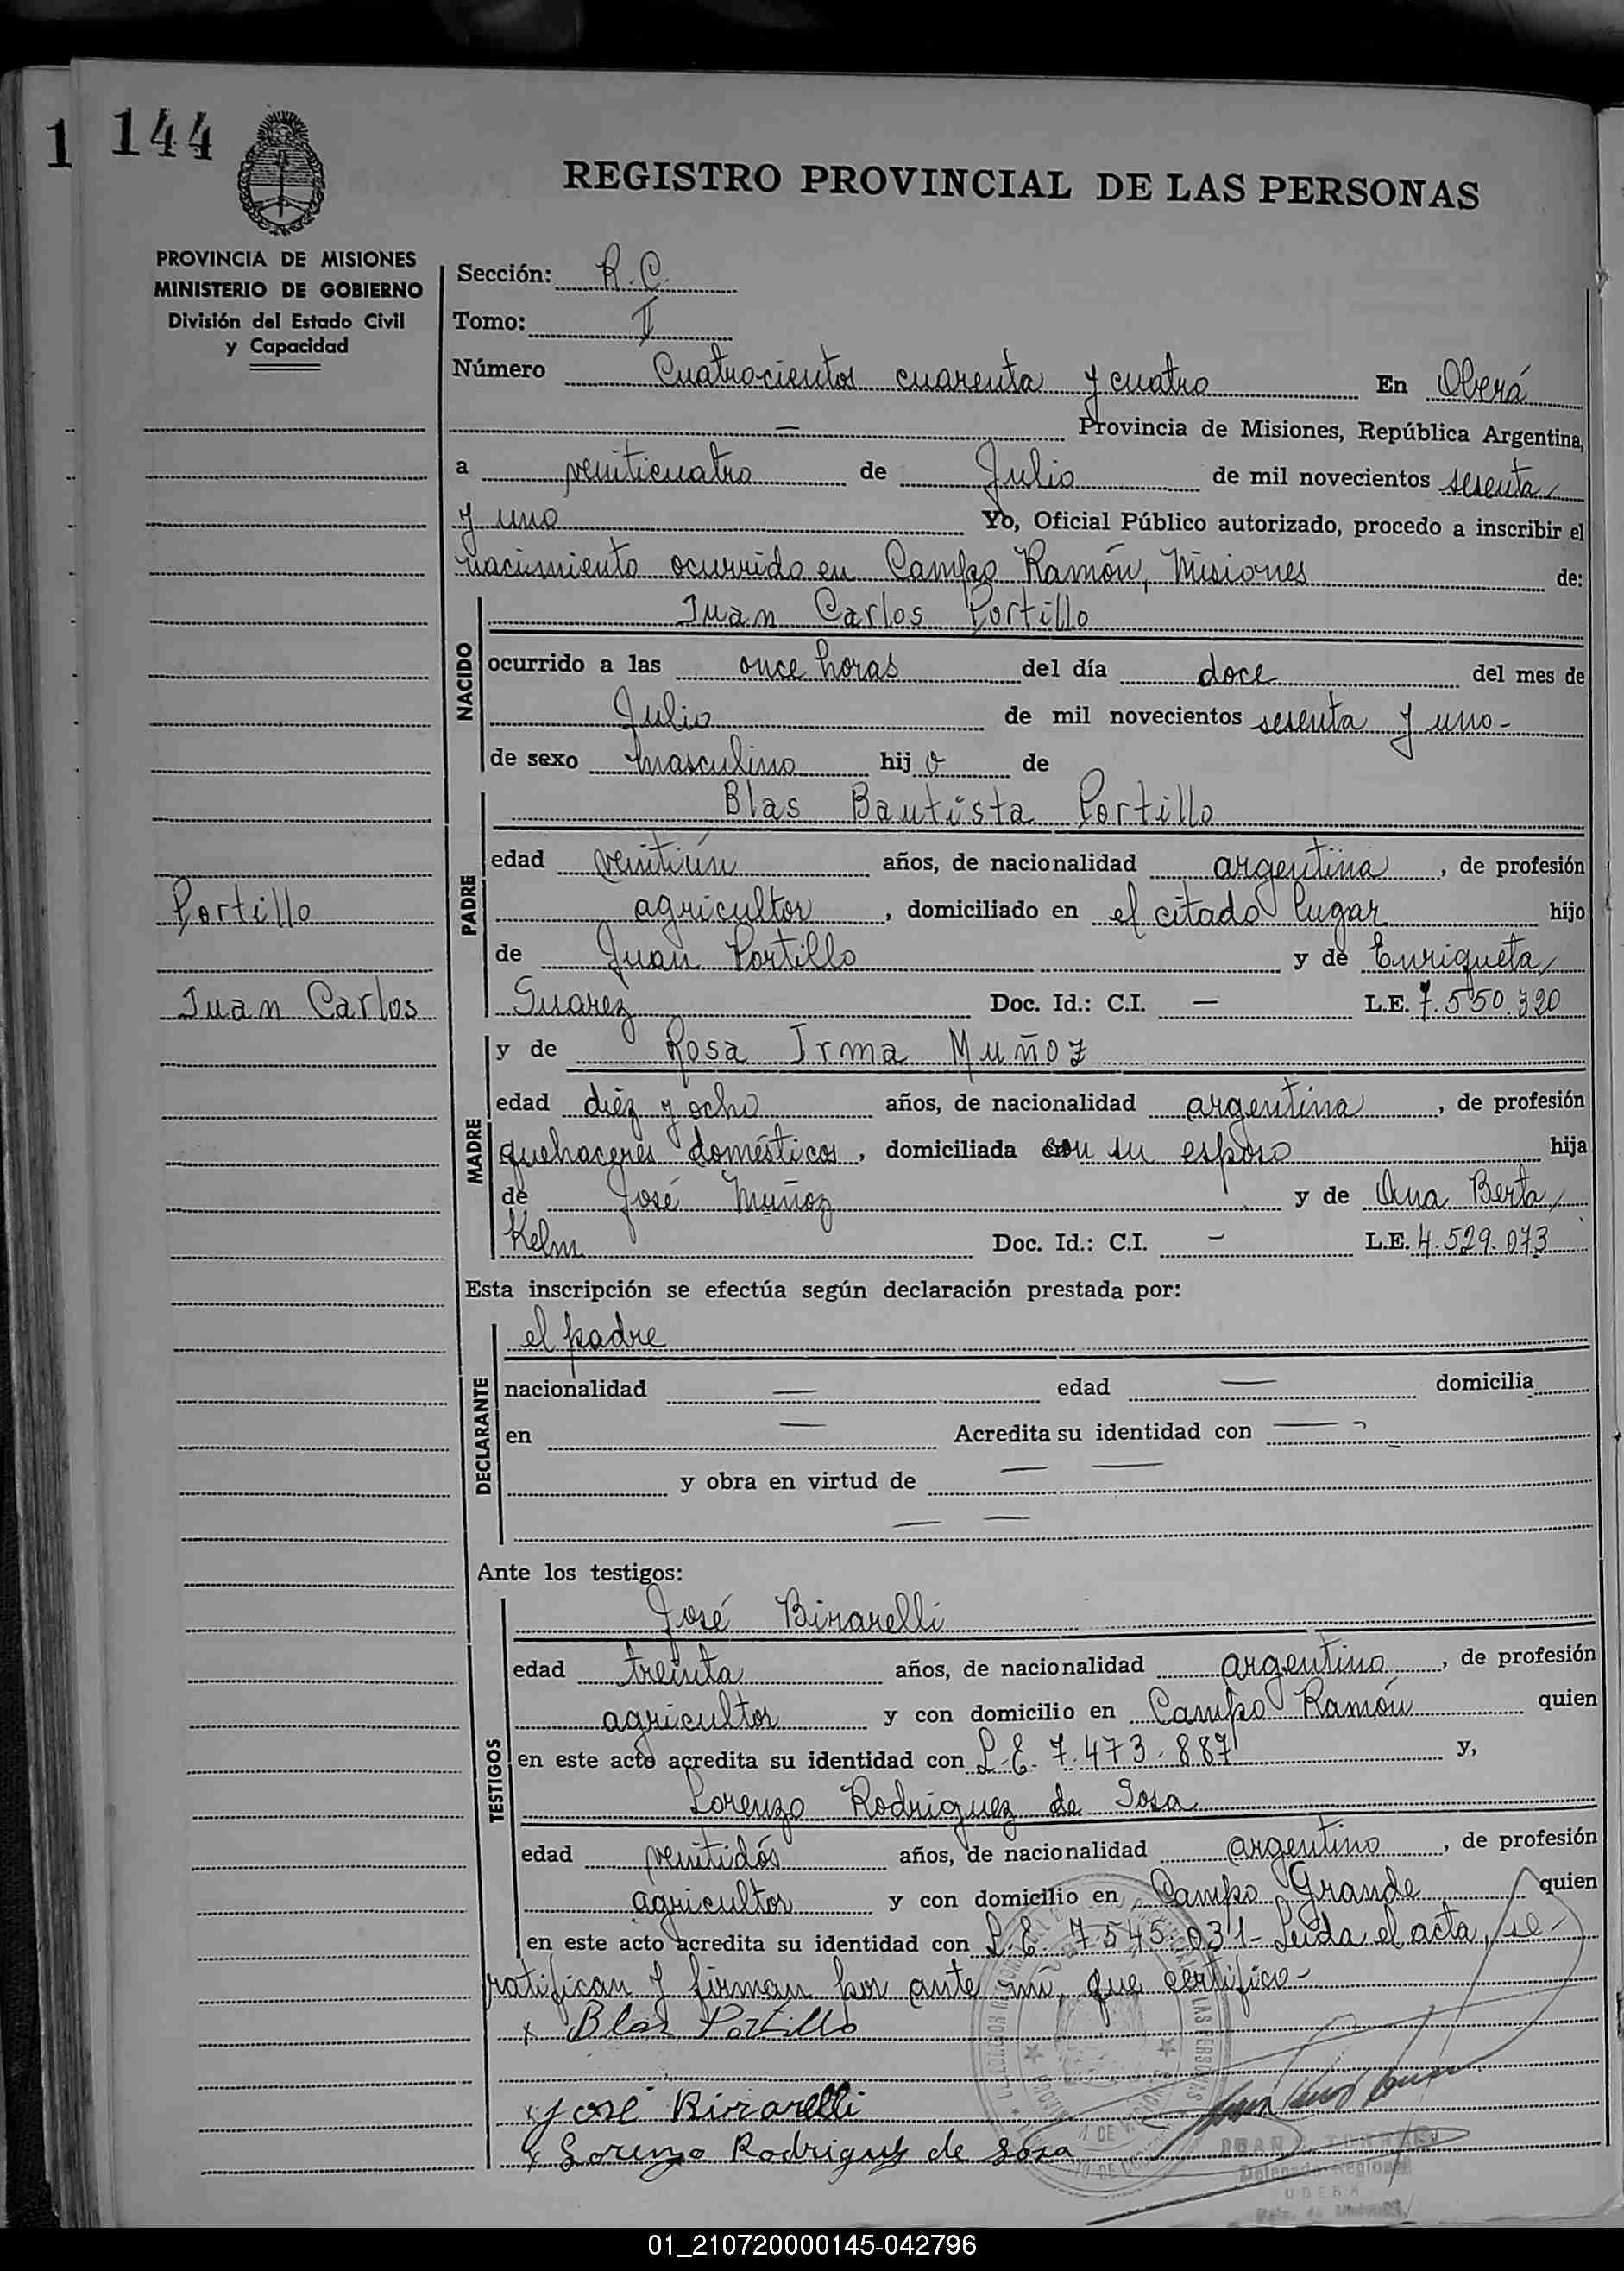 1 144
REGISTRO PROVINCIAL DE LAS PERSONAS
PROVINCIA DE MISIONES
MINISTERIO DE GOBIERNO
División del Estado Civil
y Capacidad
Sección: R. C.
Tomo: I
Número Cuatrocientos cuarenta y cuatro En Oberá
— Provincia de Misiones, República Argentina,
a veniticuatro de Julio de mil novecientos sesenta
y uno Yo, Oficial Público autorizado, procedo a inscribir el
nacimiento ocurrido en Campo Ramón, Misiones de:
NACIDO
Juan Carlos Portillo
ocurrido a las once horas del día doce del mes de
Julio de mil novecientos sesenta y uno-
de sexo masculino hijo de
PADRE
Blas Bautista Portillo
edad venitiún años, de nacionalidad argentina, de profesión
agricultor, domiciliado en el citado lugar hijo
de Juan Portillo y de Enriqueta
Suarez Doc. Id.: C.I. — L.E. 7.550.320
Portillo
Juan Carlos
MADRE
y de Rosa Irma Muñoz
edad diéz y ocho años, de nacionalidad argentina, de profesión
quehaceres domésticos, domiciliada con su esposo hija
de José Muñoz y de Ana Berta
Kelm Doc. Id.: C.I. — L.E. 4.529.073
Esta inscripción se efectúa según declaración prestada por:
DECLARANTE
el padre
nacionalidad — edad — domicilia
en — Acredita su identidad con —
y obra en virtud de — —
— —
Ante los testigos:
TESTIGOS
José Birarelli
edad treinta años, de nacionalidad argentino, de profesión
agricultor y con domicilio en Campo Ramón quien
en este acto acredita su identidad con L.E. 7.473.887 y,
Lorenzo Rodriguez de Sosa
edad venitidós años, de nacionalidad argentino, de profesión
agricultor y con domicilio en Campo Grande quien
en este acto acredita su identidad con L.E. 7.545.031- Leida el acta, se
ratifican y firman por ante mí, que certifico-
x Blas Portillo
x José Birarelli
x Lorenzo Rodriguez de Sosa
Delegado Regional
OBERA
01_210720000145-042796